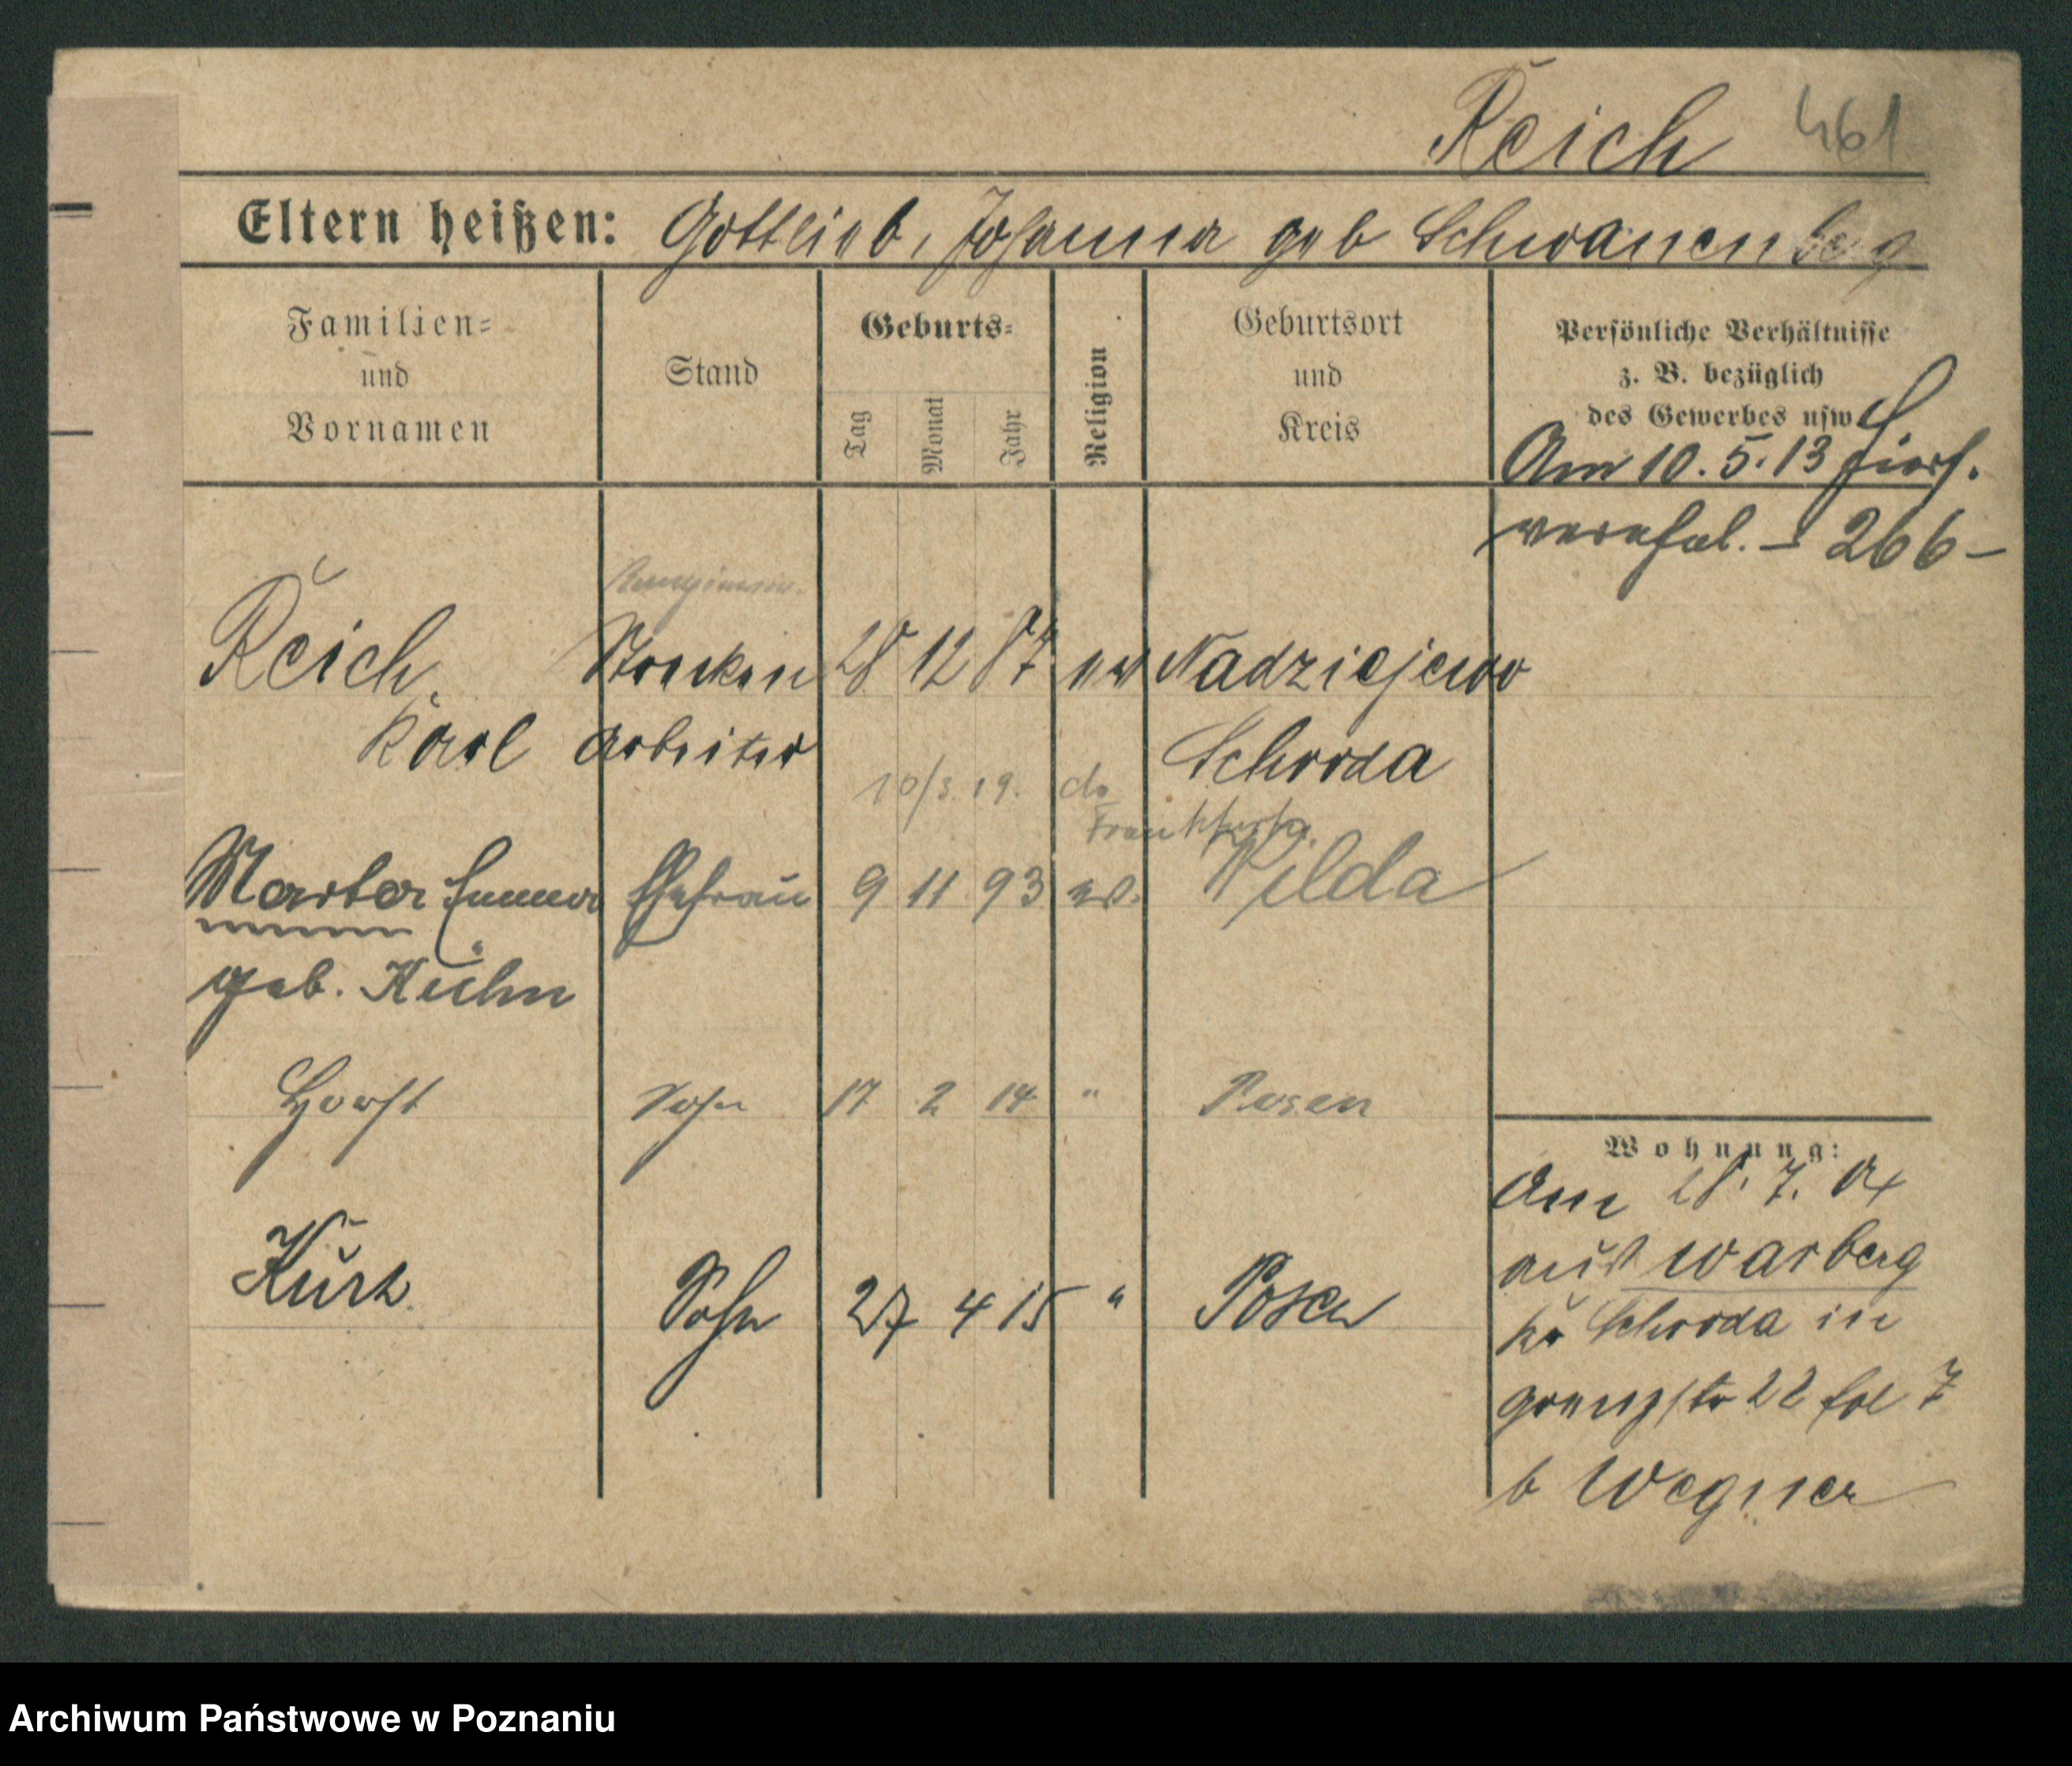 Reich 461
Eltern heißen: Gottlieb, Johanna geb Schwanenberg
Familien=
und
Vornamen
Stand
Geburts=
Tag Monat Jahr
Religion
Geburtsort
und
Kreis
Persönliche Verhältnisse
z. B. bezüglich
des Gewerbes usw.
Am 10.5.13 hier
verehel. - 266 -
Reich, Strecken 28 12 87 ev Nadziejewo
Karl arbeiter Schroda
10/3. 19. do
Frankfurt
Marta Emma Ehefrau 9 11 93 ev. Wilda
geb. Kühn
Horst Sohn 17 2 14 " Posen
Kurt Sohn 27 4 15 " Posen
Wohnung:
Am 28. 7. 04
aus Warberg
Kr Schroda in
Grenzstr 22 fol 7
b Wegner
Archiwum Państwowe w Poznaniu